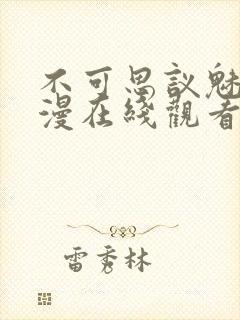 不可思议魅
漫在线观看
雷秀林